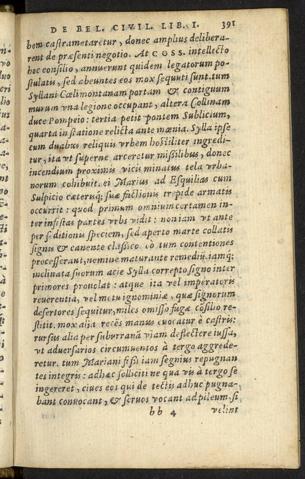 DE BEL. CIVIL. LIB. I. 391
bem castrametaretur, donec amplius delibera-
rent de præsenti negotio. At COSS. intellecto
hoc consilio, annuerunt quidem legatorum po-
stulatis, sed abeuntes eos mox sequuti sunt. tum
Syllani Cælimontanam portam & contiguum
murum vna legione occupant, altera Collinam
duce Pompeio: tertia petit pontem Sublicium,
quarta in statione relicta ante mœnia. Sylla ipse
cum duabus reliquis vrbem hostiliter ingredi-
tur, ita vt superne arceretur missilibus, donec
incendium proximis vicis minatus tela vrba-
norum cohibuit. ei Marius ad Esquilias cum
Sulpicio cæterisq; suæ factionis trepide armatis
occurrit: quod primum omnium certamen in-
ter infestas partes vrbs vidit: non iam vt ante
per seditionis speciem, sed aperto marte collatis
signis & canente classico. eo tum contentiones
processerant, nemine maturante remedium. iamq;
inclinata suorum acie Sylla correpto signo inter
primores prouolat: atque ita vel imperatoris
reuerentia, vel metu ignominiæ, quæ signorum
desertores sequitur, miles omisso fugæ cōsilio re-
stitit. mox alia recēs manus euocatur è castris:
rursus alia per suburranā viam deflectere iussa,
vt aduersarios circumuentos à tergo aggrede-
retur. tum Mariani fessi iam segnius repugnan
tes integris: adhæc solliciti ne qua vis à tergo se
ingereret, ciues eos qui de tectis adhuc pugna-
bant conuocant, & seruos vocant ad pileum, si
bb 4 velint